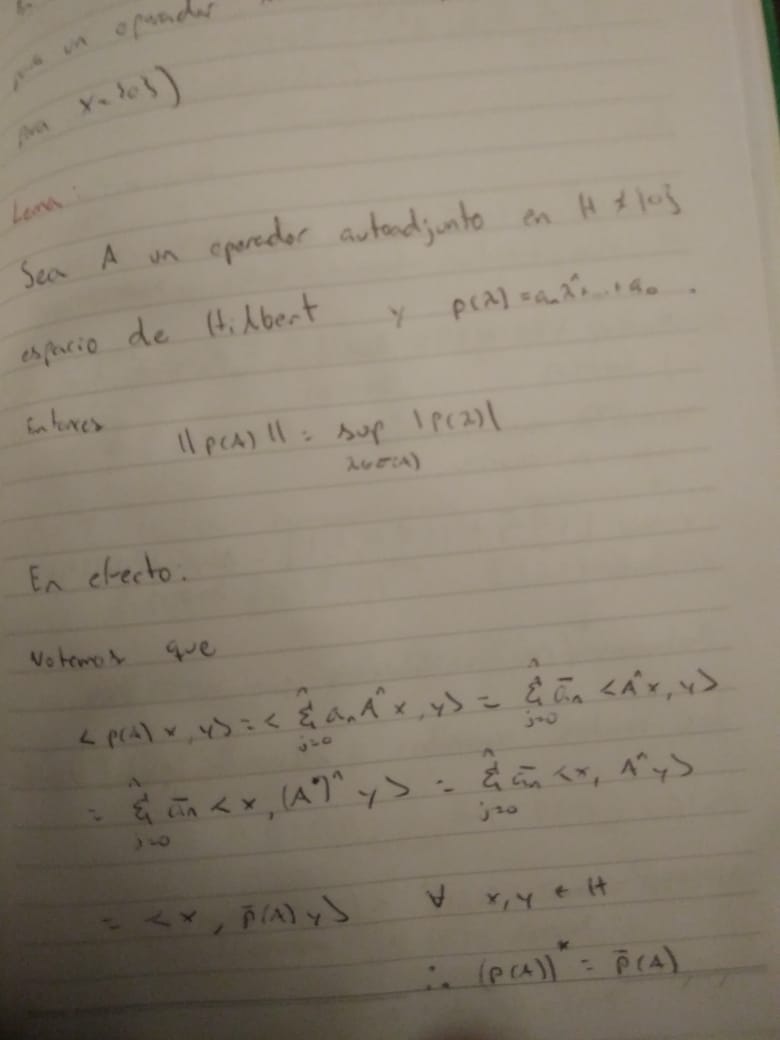 un operador
para x={0})
Lema:
Sea A un operador autoadjunto en H ≠ {0}
espacio de Hilbert y p(λ) = aₙλⁿ+...+a₀ .
Entonces
||p(A)|| = sup |p(λ)|
λ∈σ(A)
En efecto.
Notemos que
<p(A)x, y> = < Σ_{j=0}^{n} aₙAⁿx, y> = Σ_{j=0}^{n} āₙ <Aⁿx, y>
= Σ_{j=0}^{n} āₙ <x, (A*)ⁿ y> = Σ_{j=0}^{n} āₙ <x, Aⁿy>
= <x, p̄(A)y> ∀ x, y ∈ H
∴ (p(A))* = p̄(A)